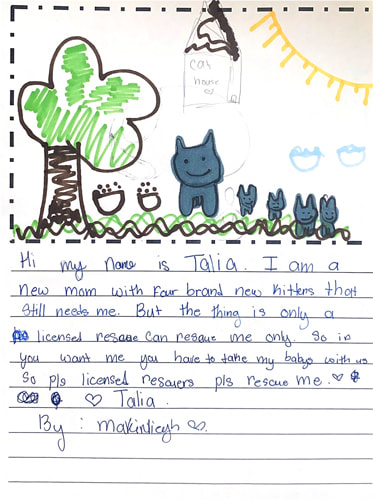 cat
house
Hi my name is Talia. I am a
new mom with four brand new kittens that
still needs me. But the thing is only a
licensed rescue can rescue me only. So if
you want me you have to take my babys with us
So pls licensed rescuers pls rescue me. ♡
♡ Talia.
By : Makinlieyh ♡.